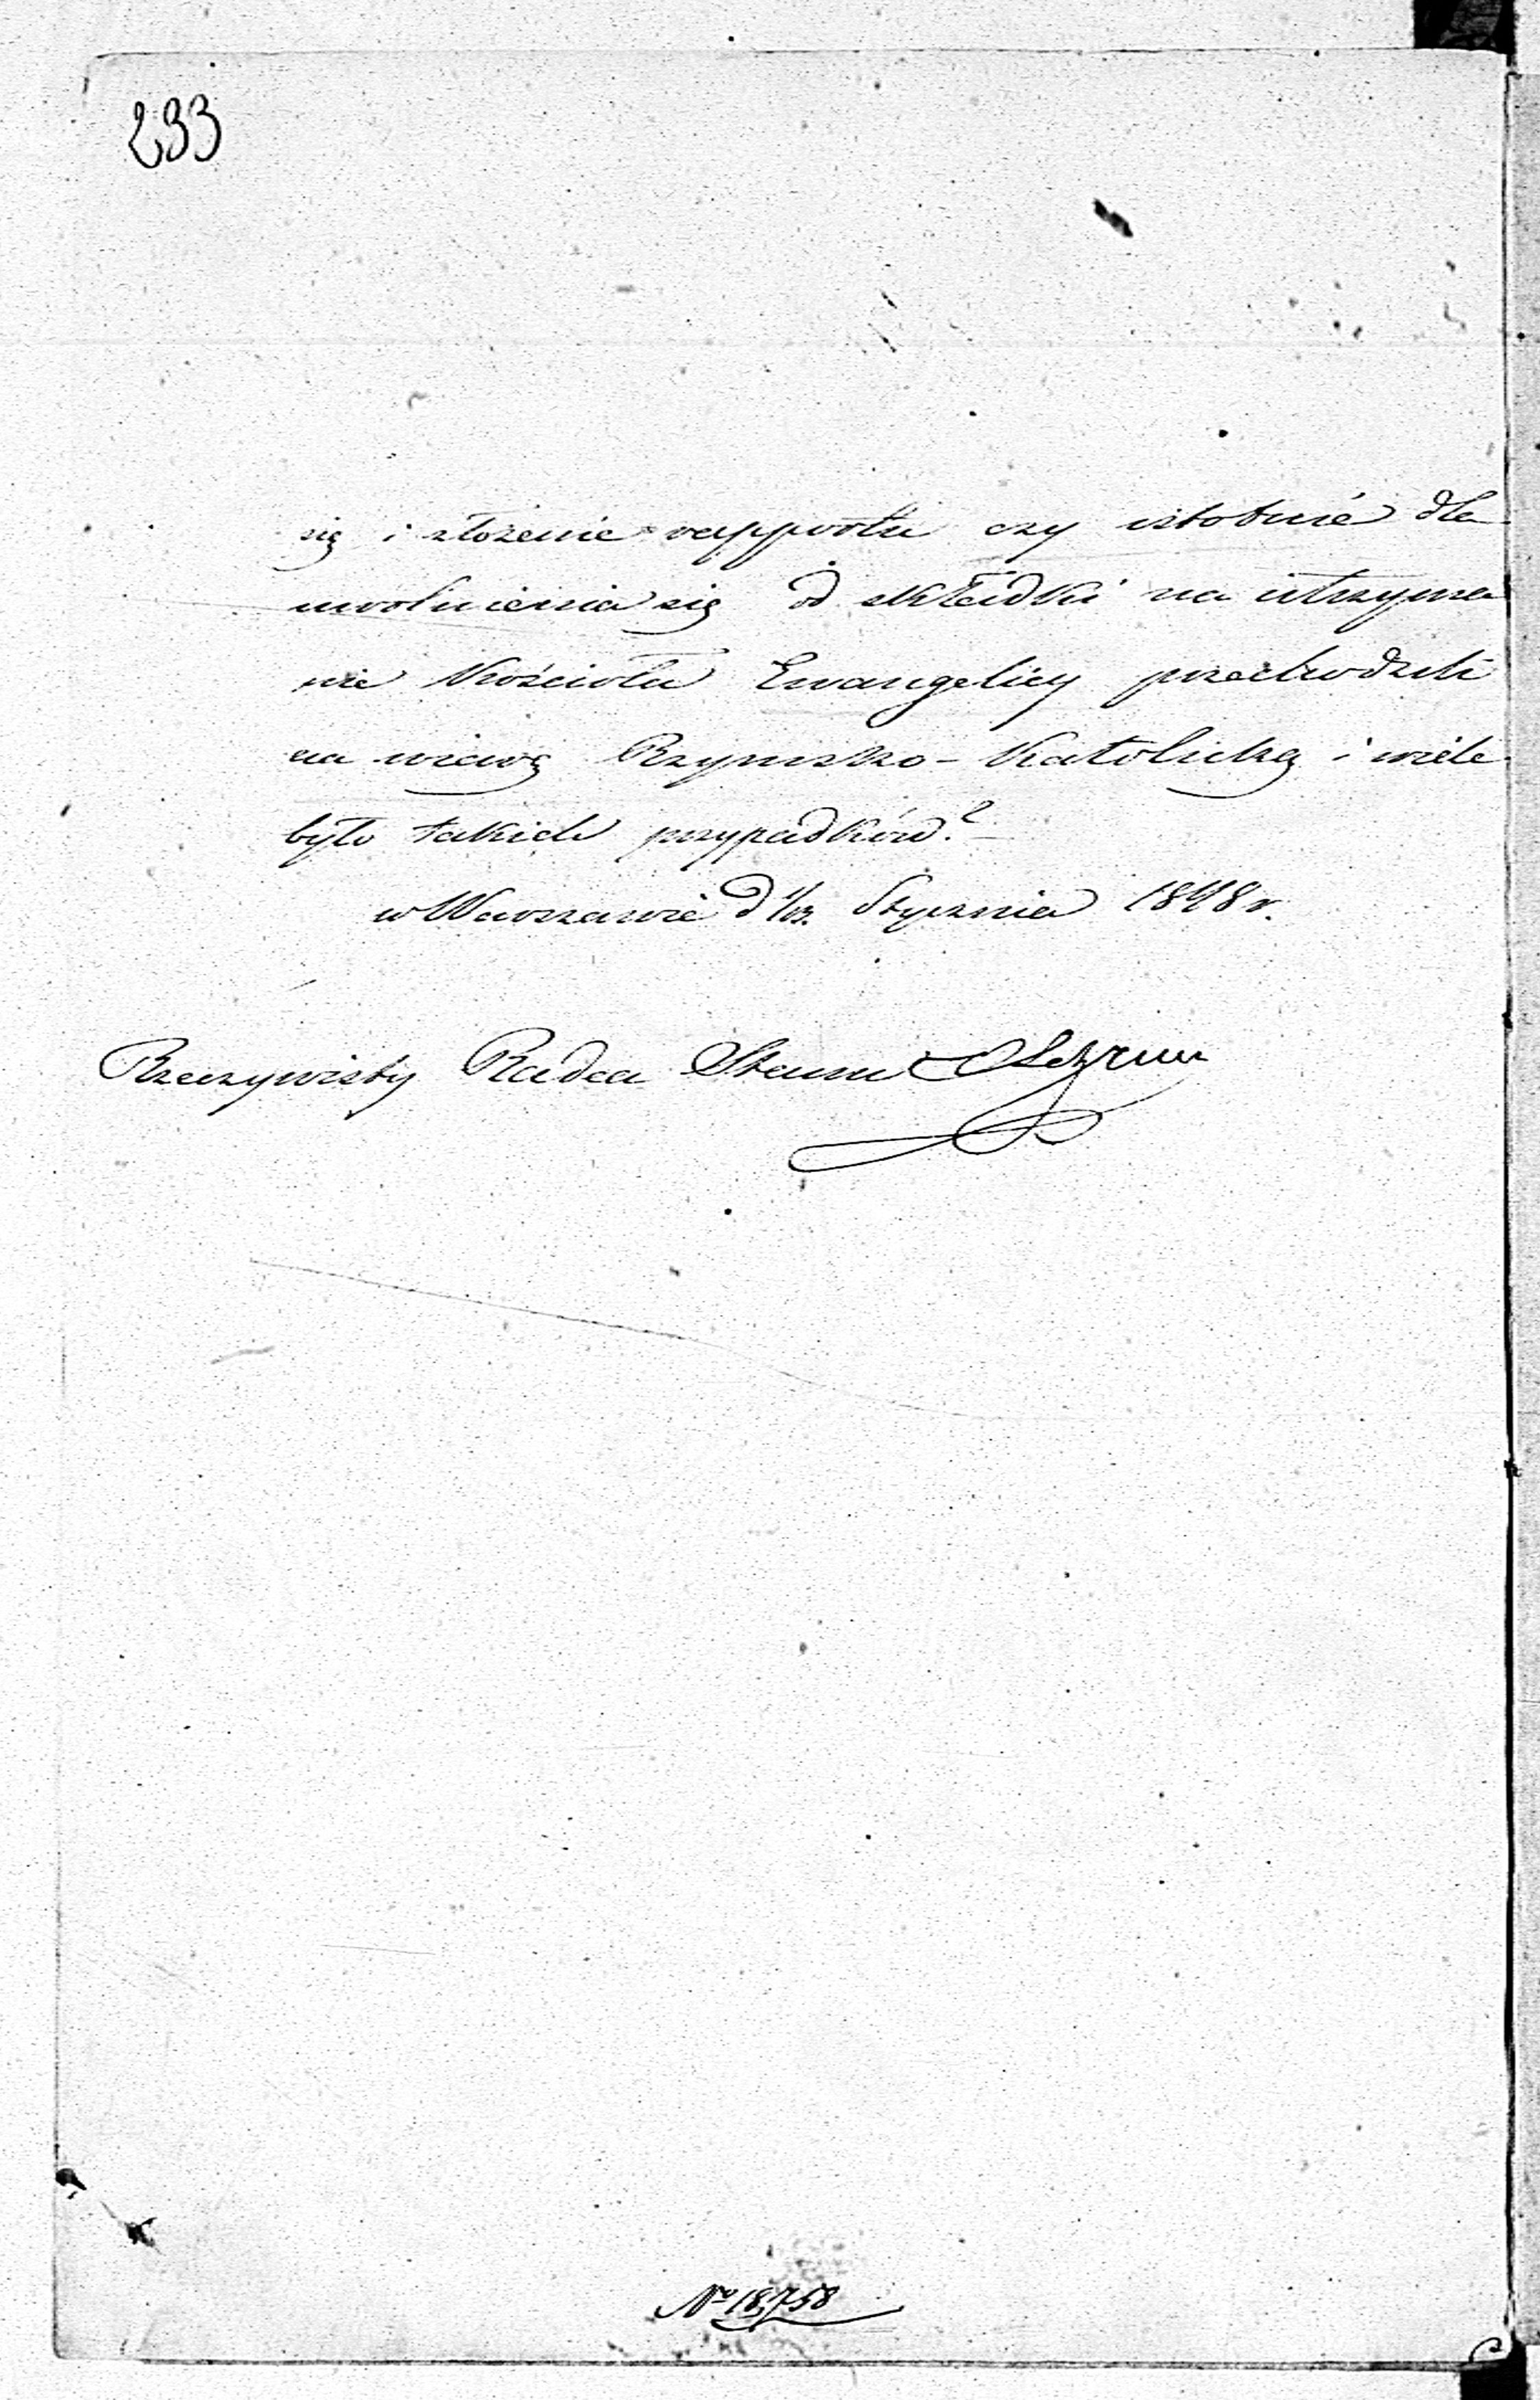 293
się i złożenie rapportu czy istotnie dla
uwolnienia się od składki na utrzyma
nie Kościoła Ewangelicy przechodzili
na wiarę Rzymsko-Katolicką i wiele
było takich przypadków?
w Warszawie d 1/13 Stycznia 1848 r.
Rzeczywisty Radca Stanu
No 18,758